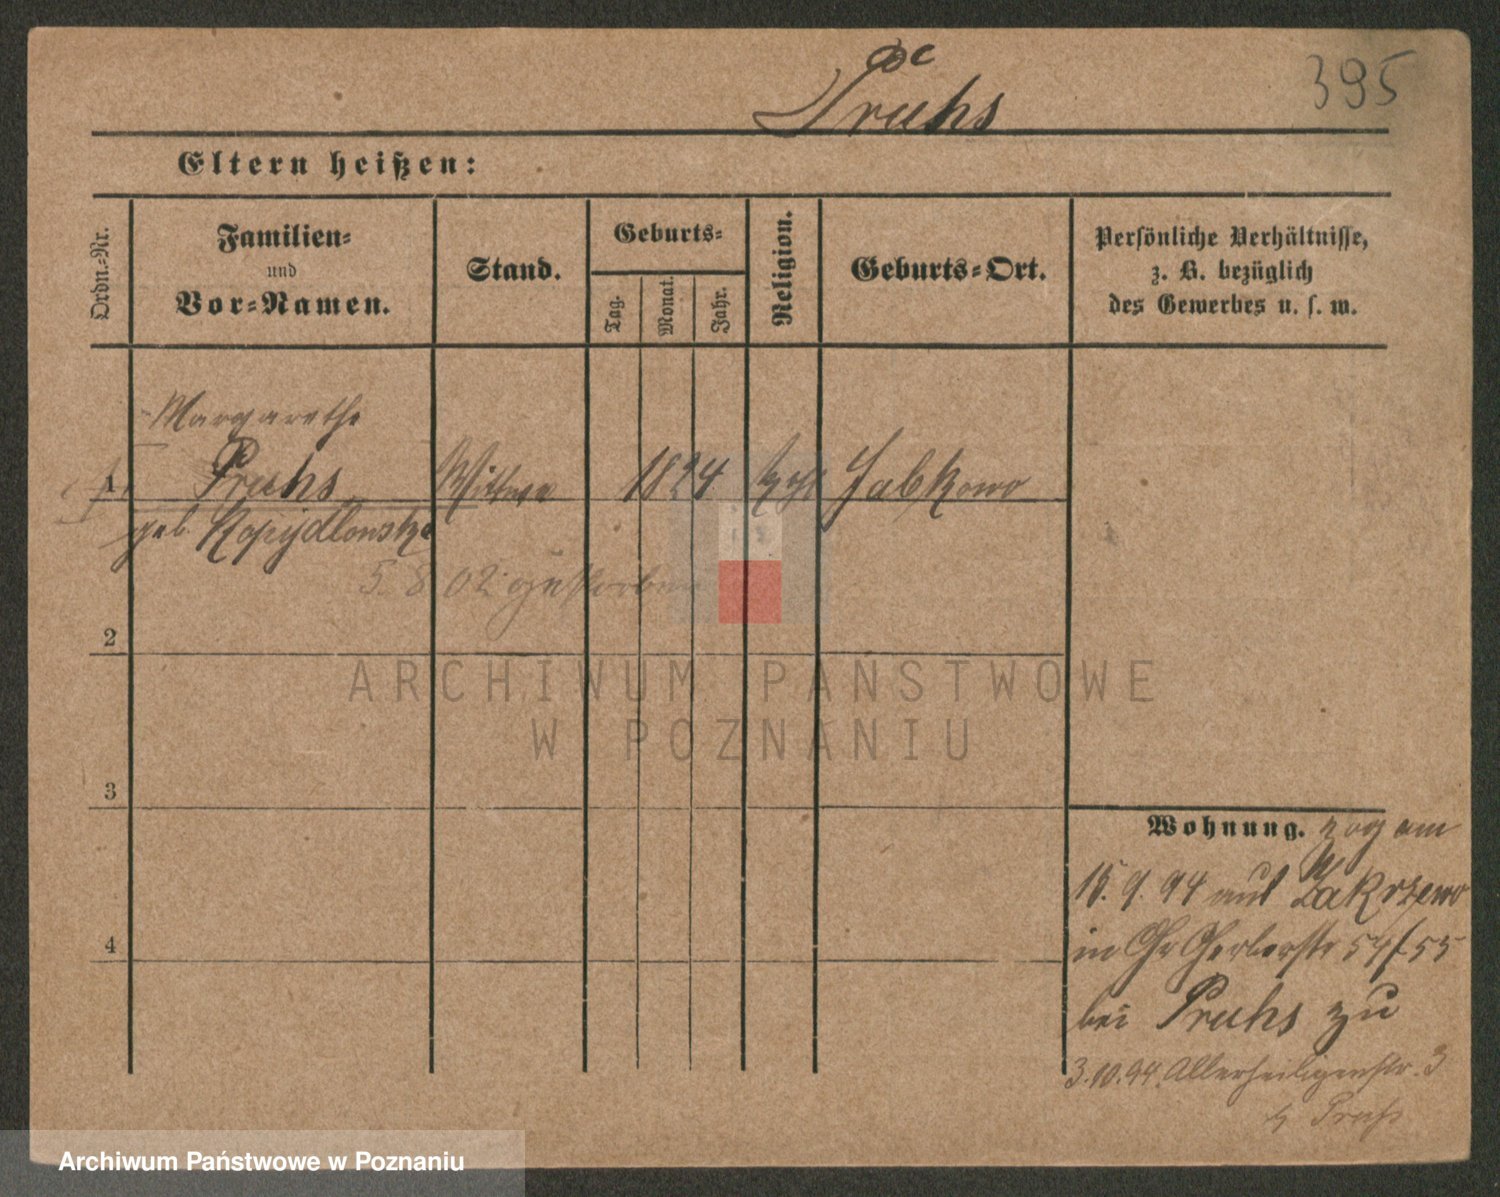 Pruhs
395
Eltern heißen:
Ordn.-Nr.
Familien-
und
Vor-Namen.
Stand.
Geburts-
Tag.
Monat.
Jahr.
Religion.
Geburts-Ort.
Persönliche Verhältnisse,
z. B. bezüglich
des Gewerbes u. s. w.
Margarethe
1 Pruhs Wittwe 1824 kth Jabkowo
geb. Kopydlonska
5. 8 02 gestorben
2
ARCHIWUM PAŃSTWOWE
W POZNANIU
3
Wohnung. zog am
15. 9. 94 aus Zakrzewo
in Gr Gerberstr 54/55
bei Pruhs zu
4
3.10.94. Allerheiligenstr. 3
b Pruhs
Archiwum Państwowe w Poznaniu